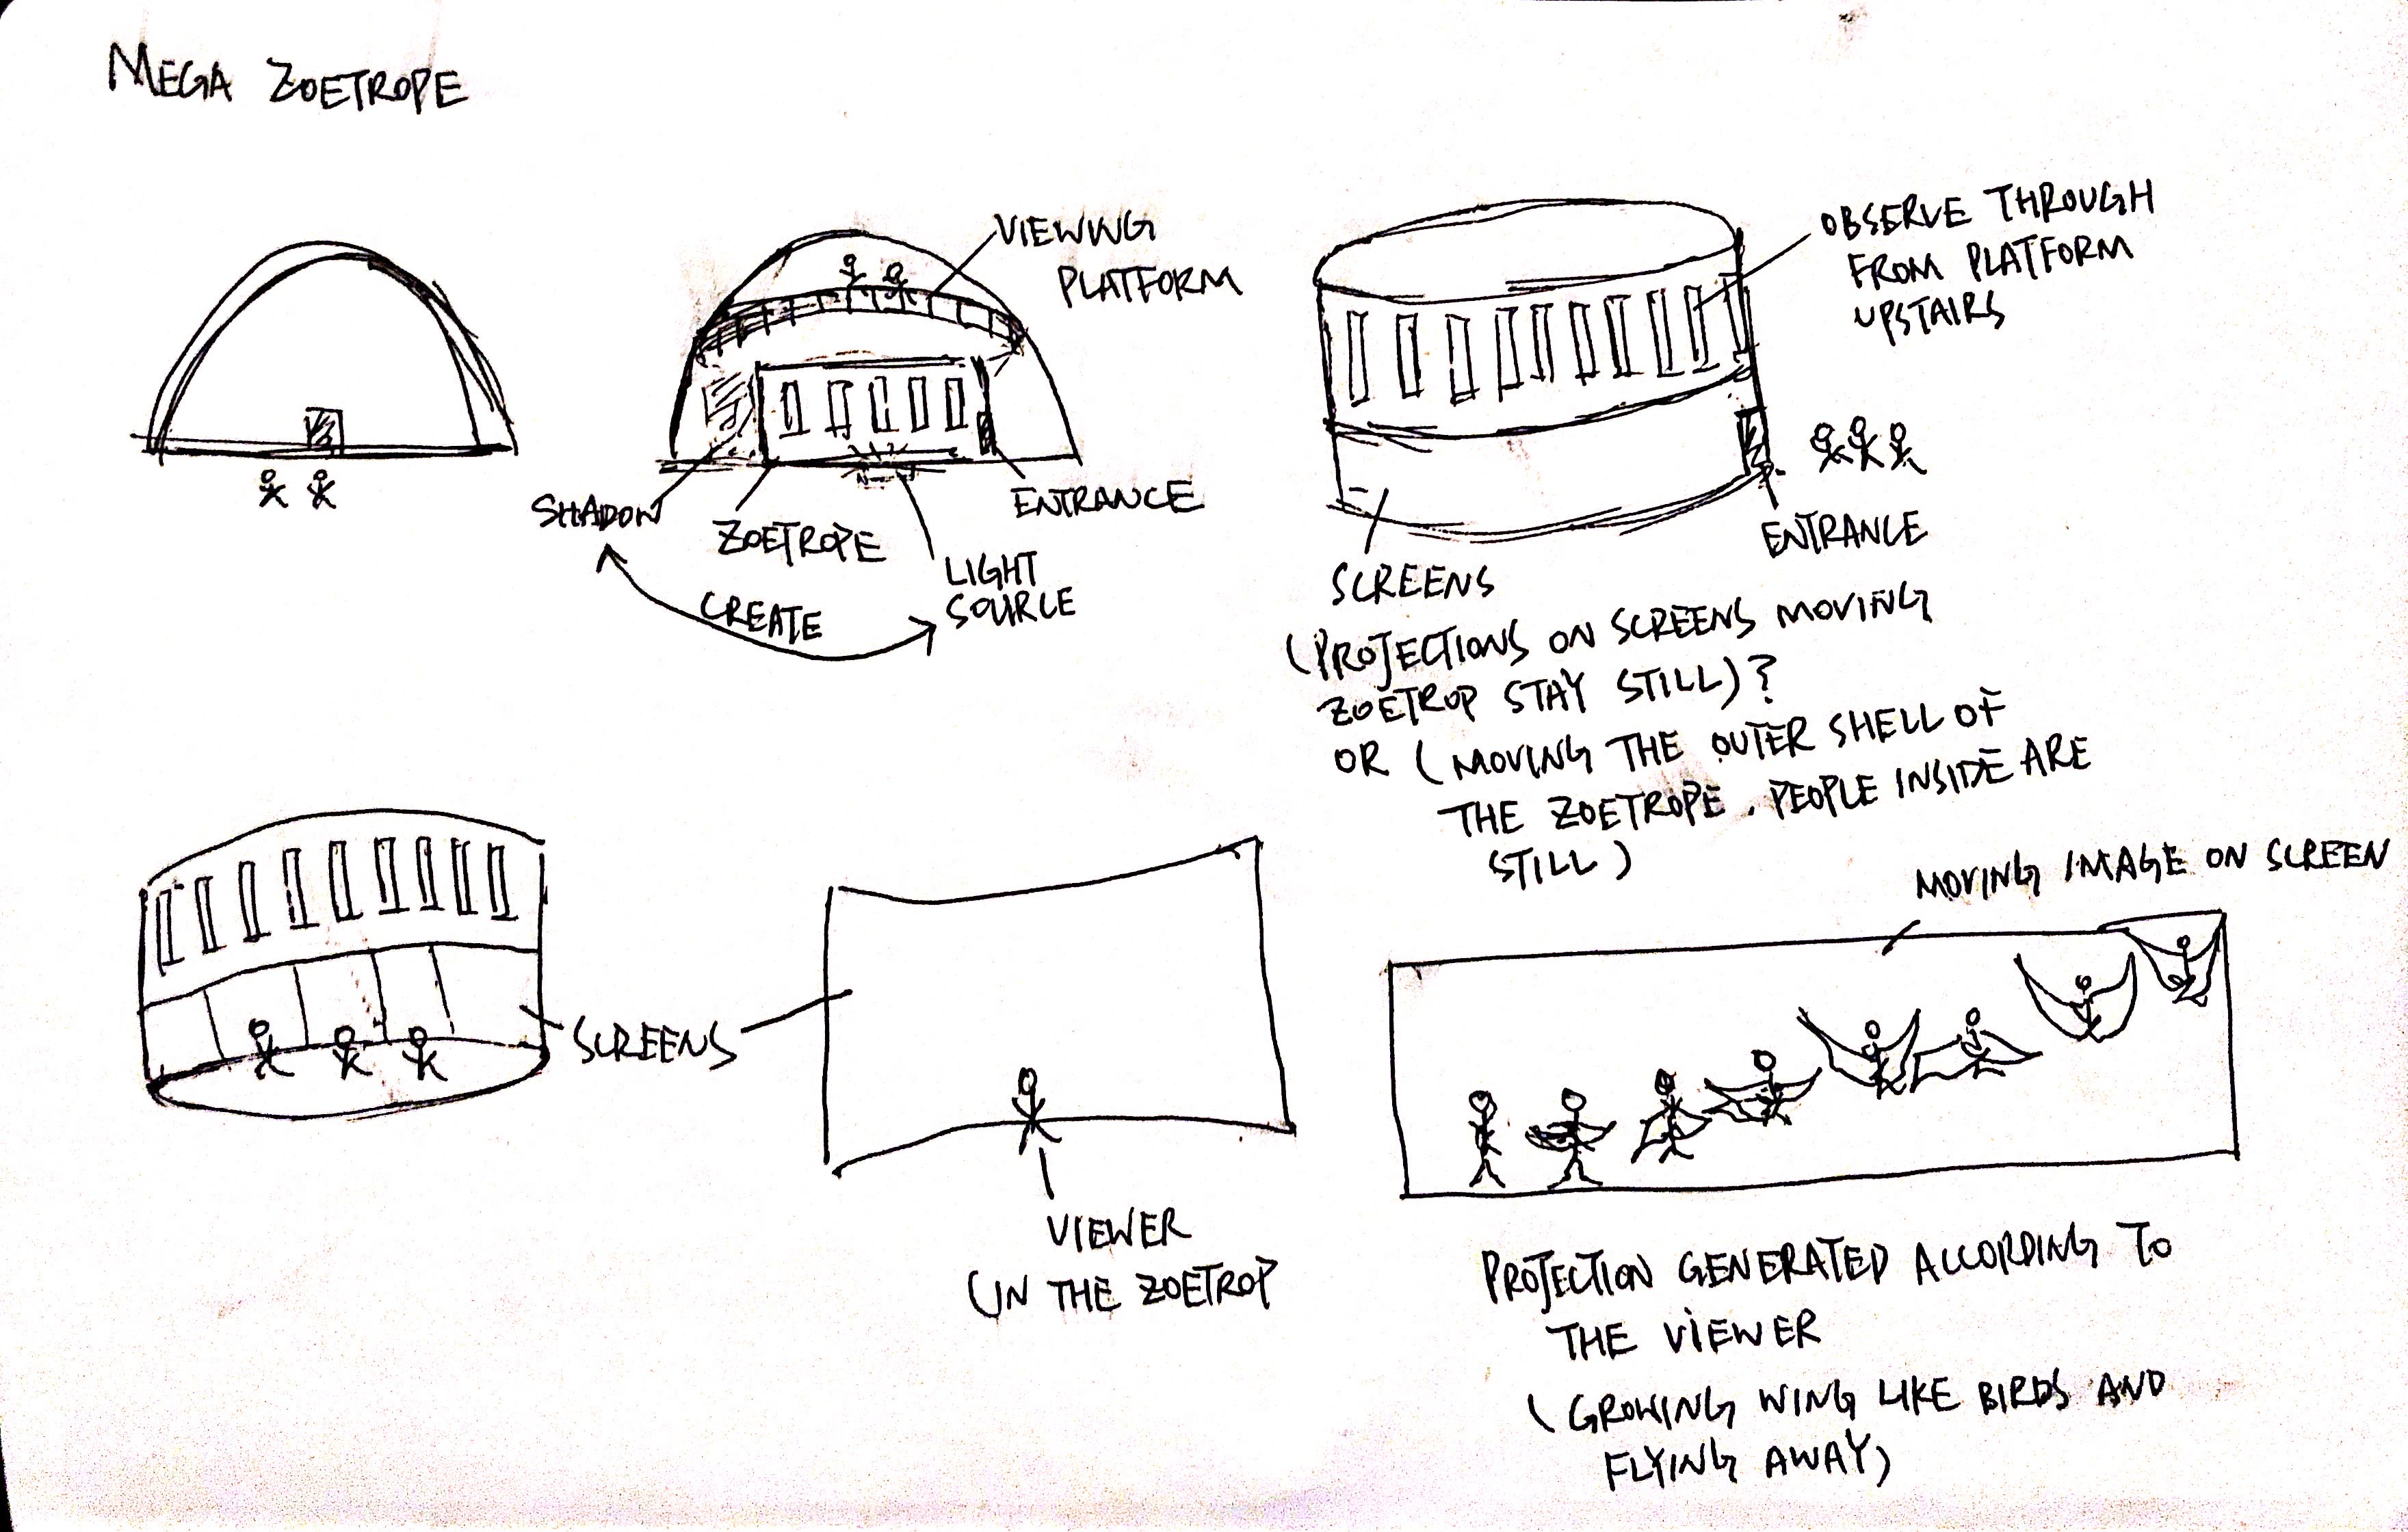 MEGA ZOETROPE
VIEWING
PLATFORM
SHADOW
ZOETROPE
LIGHT
SOURCE
ENTRANCE
CREATE
OBSERVE THROUGH
FROM PLATFORM
UPSTAIRS
ENTRANCE
SCREENS
(PROJECTIONS ON SCREENS MOVING
ZOETROP STAY STILL)?
OR (MOVING THE OUTER SHELL OF
THE ZOETROPE. PEOPLE INSIDE ARE
STILL)
SCREENS
VIEWER
(IN THE ZOETROP
MOVING IMAGE ON SCREEN
PROJECTION GENERATED ACCORDING TO
THE VIEWER
(GROWING WING LIKE BIRDS AND
FLYING AWAY)